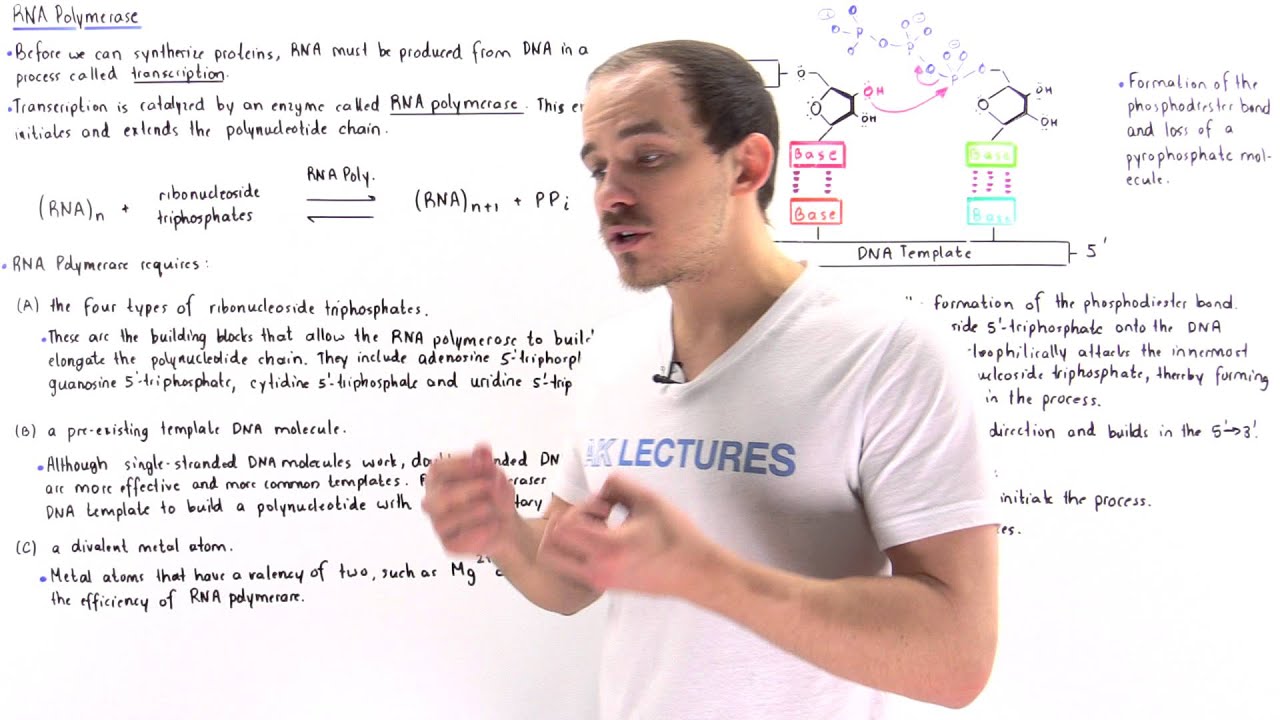 RNA Polymerase
• Before we can synthesize proteins, RNA must be produced from DNA in a
process called transcription.
• Transcription is catalyzed by an enzyme called RNA polymerase. This
initiates and extends the polynucleotide chain.
(RNA)n + ribonucleoside
triphosphates
RNA Poly.
(RNA)n+1 + PPi
• RNA Polymerase requires:
(A) the four types of ribonucleoside triphosphates.
• These are the building blocks that allow the RNA polymerase to
elongate the polynucleotide chain. They include adenosine
guanosine 5'-triphosphate, cytidine 5'-triphosphate and uridine
(B) a pre-existing template DNA molecule.
• Although single-stranded DNA molecules work,
are more effective and more common templates.
DNA template to build a polynucleotide with
(C) a divalent metal atom.
• Metal atoms that have a valency of two, such as Mg
the efficiency of RNA polymerase.
O P O P O P O
O OH OH
O OH OH
Base Base
Base Base
DNA Template 5'
• Formation of the
phosphodiester bond
and loss of a
pyrophosphate mol-
ecule.
formation of the phosphodiester bond.
5'-triphosphate onto the DNA
attacks the innermost
triphosphate, thereby forming
in the process.
direction and builds in the 5'→3'.
initiate the process.
AK LECTURES